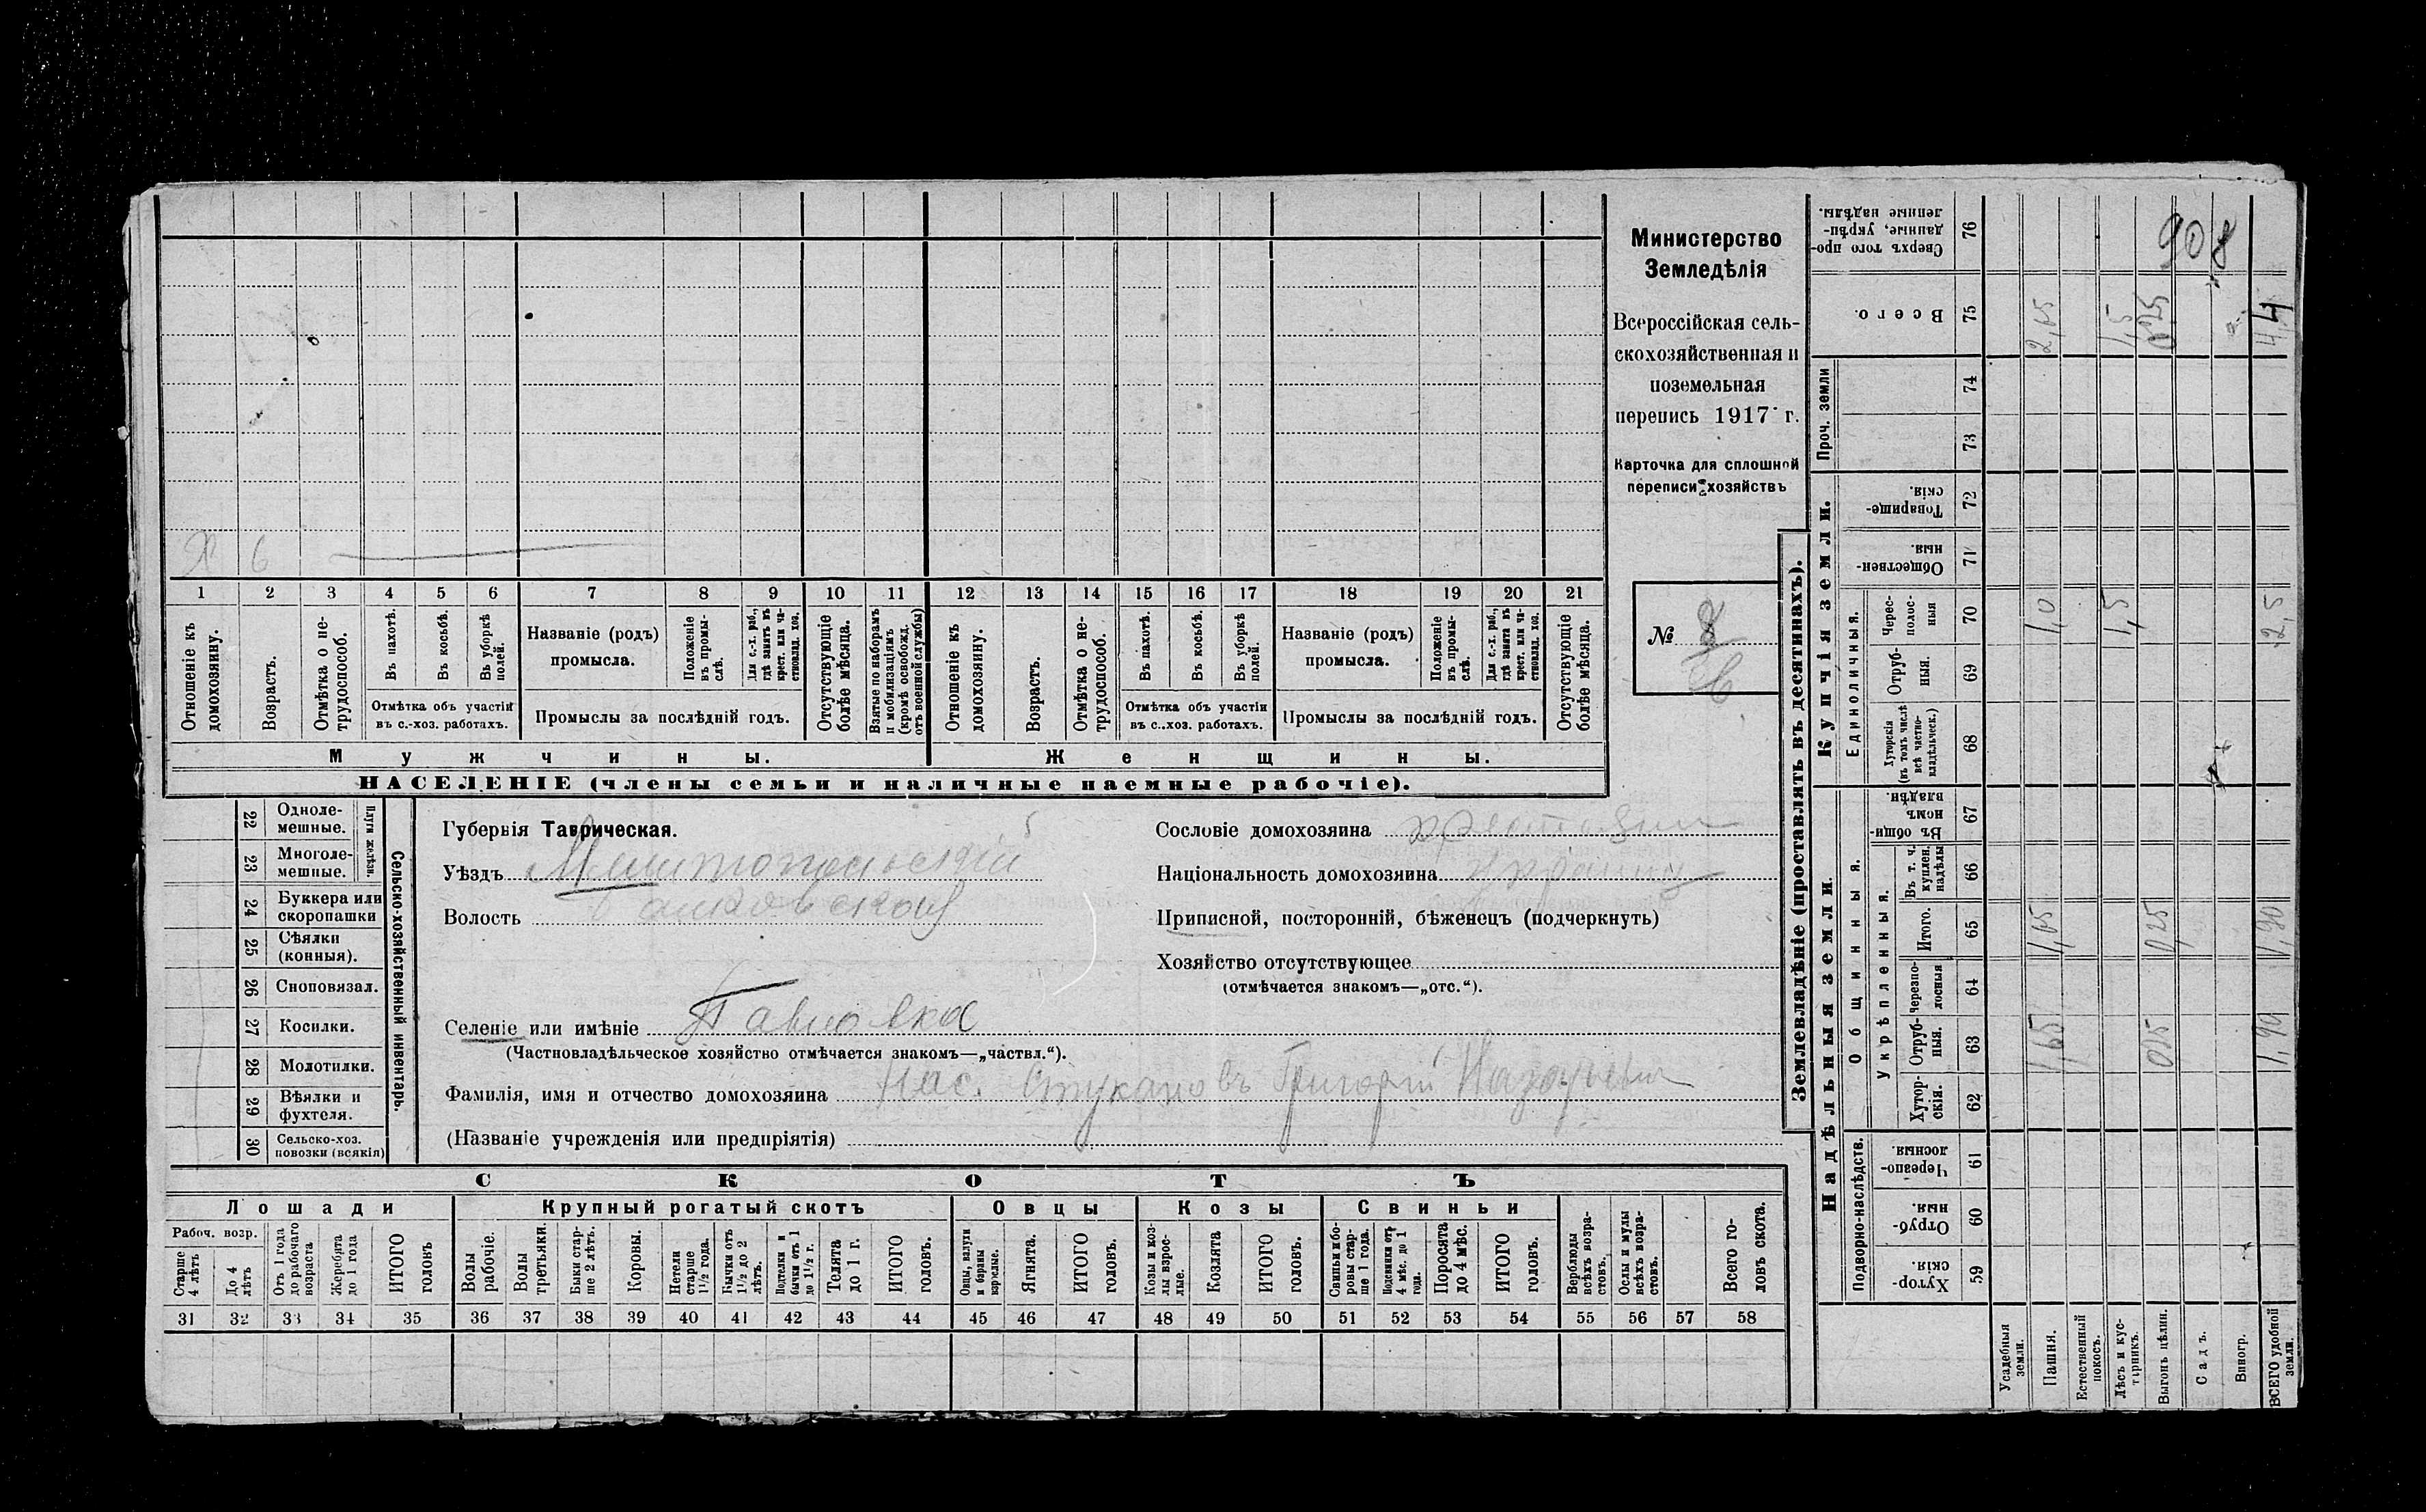 1 2 3 4 5 6 7 8 9 10 11 12 13 14 15 16 17 18 19 20 21
Х 6
Отношеніе къ домохозяину.
Возрастъ.
Отмѣтка о не-
трудоспособ.
Въ пахотѣ.
Въ косьбѣ.
Въ уборкѣ полей.
Отмѣтка объ участіи
въ с.-хоз. работахъ.
Названіе (родъ)
промысла.
Положеніе въ промы-
слѣ.
Для с.-х. раб.,
гдѣ занятъ въ
крест. или ча-
стновлад. хоз.
Промыслы за послѣдній годъ.
Отсутствующіе
болѣе мѣсяца.
Взятые по наборамъ
и мобилизаціямъ
(кромѣ освобожд.
отъ военной службы)
Отношеніе къ
домохозяину.
Возрастъ.
Отмѣтка о не-
трудоспособ.
Въ пахотѣ.
Въ косьбѣ.
Въ уборкѣ полей.
Отмѣтка объ участіи
въ с..хоз. работахъ.
Названіе (родъ)
промысла.
Положеніе
въ промы-
слѣ.
Для с.-х. раб.,
гдѣ занята въ
крест. или ча-
стновлад. хоз.
Промыслы за послѣдній годъ.
Отсутствующіе
болѣе мѣсяца.
Мужчины.
Женщины.
НАСЕЛЕНІЕ (члены семьи и наличные наемные рабочіе).
Министерство
Земледѣлія
Всероссійская сель-
скохозяйственная и
поземельная
перепись 1917 г.
Карточка для сплошной
переписи хозяйствъ
№ 8
22 Одноле-
мешные.
23 Многоле-
мешные.
Плуги желѣзн.
24 Буккера или
скоропашки
25 Сѣялки
(конныя).
26 Сноповязал.
27 Косилки.
28 Молотилки.
29 Вѣялки и
фухтеля.
30 Сельско-хоз.
повозки (всякія)
Сельско-хозяйственный инвентарь.
Губернія Таврическая.
Уѣздъ Мелитопольскій
Волость
Селеніе или имѣніе Павловка
(Частновладѣльческое хозяйство отмѣчается знакомъ—„частвл.“).
Фамилія, имя и отчество домохозяина Нас. Стукановъ Григорій Назарьевич
(Названіе учрежденія или предпріятія)
Сословіе домохозяина
Національность домохозяина
Приписной, посторонній, бѣженецъ (подчеркнуть)
Хозяйство отсутствующее
(отмѣчается знакомъ—„отс.“).
СКОТЪ
Лошади
Рабоч. возр.
Старше
4 лѣтъ
До 4
лѣтъ
Отъ 1 года
до рабочаго
возраста
Жеребята
до 1 года
ИТОГО
головъ
Крупный рогатый скотъ
Волы
рабочіе.
Волы
третьяки.
Быки стар-
ше 2 лѣтъ.
Коровы.
Нетели
старше
1½ года.
Бычки отъ
1½ до 2
лѣтъ.
Подтелки и
бычки отъ 1
до 1½ г.
Телята
до 1 г.
ИТОГО
головъ.
Овцы
Овцы, валухи
и бараны
взрослые.
Ягнята.
ИТОГО
головъ.
Козы
Козы и коз-
лы взрос-
лые.
Козлята
ИТОГО
головъ.
Свиньи
Свиньи и бо-
ровы стар-
ше 1 года.
Подсвинки отъ
4 мѣс. до 1
года.
Поросята
до 4 мѣс.
ИТОГО
головъ.
Верблюды
всѣхъ возра-
стовъ.
Ослы и мулы
всѣхъ возра-
стовъ.
Всего го-
ловъ скота.
31 32 33 34 35 36 37 38 39 40 41 42 43 44 45 46 47 48 49 50 51 52 53 54 55 56 57 58
Землевладѣніе (проставлять въ десятинахъ).
Надѣльныя земли.
Подворно-наслѣдств.
Хутор-
скія. 59
Отруб-
ныя. 60
Черезпо-
лосныя. 61
Общинныя.
Укрѣпленныя.
Хутор-
скія. 62
Отруб-
ныя. 63 1,65 0,25 1,90
Черезпо-
лосныя 64
Итого. 65 1,65 0,25 1,90
Въ т. ч.
куплен.
надѣлы 66
Въ общин-
номъ
владѣн. 67
Купчія земли.
Единоличныя.
Хуторскія
(въ томъ числѣ
всѣ частно-
владѣльческ.) 68
Отруб-
ныя. 69
Черес-
полос-
ныя 70 1,0 1,5 2,5
Обществен-
ныя. 71
Товарище-
скія. 72
Проч. земли
73
74
Всего. 75 2,65 1,5 0,25 4,4
Сверхъ того про-
данные, укрѣп-
ленные надѣлы. 76
908
Усадебныя
земли.
Пашня.
Естественный
покосъ.
Лѣсъ и кус-
тарникъ.
Выгонъ цѣлин.
Садъ.
Виногр.
ВСЕГО удобной
земли.